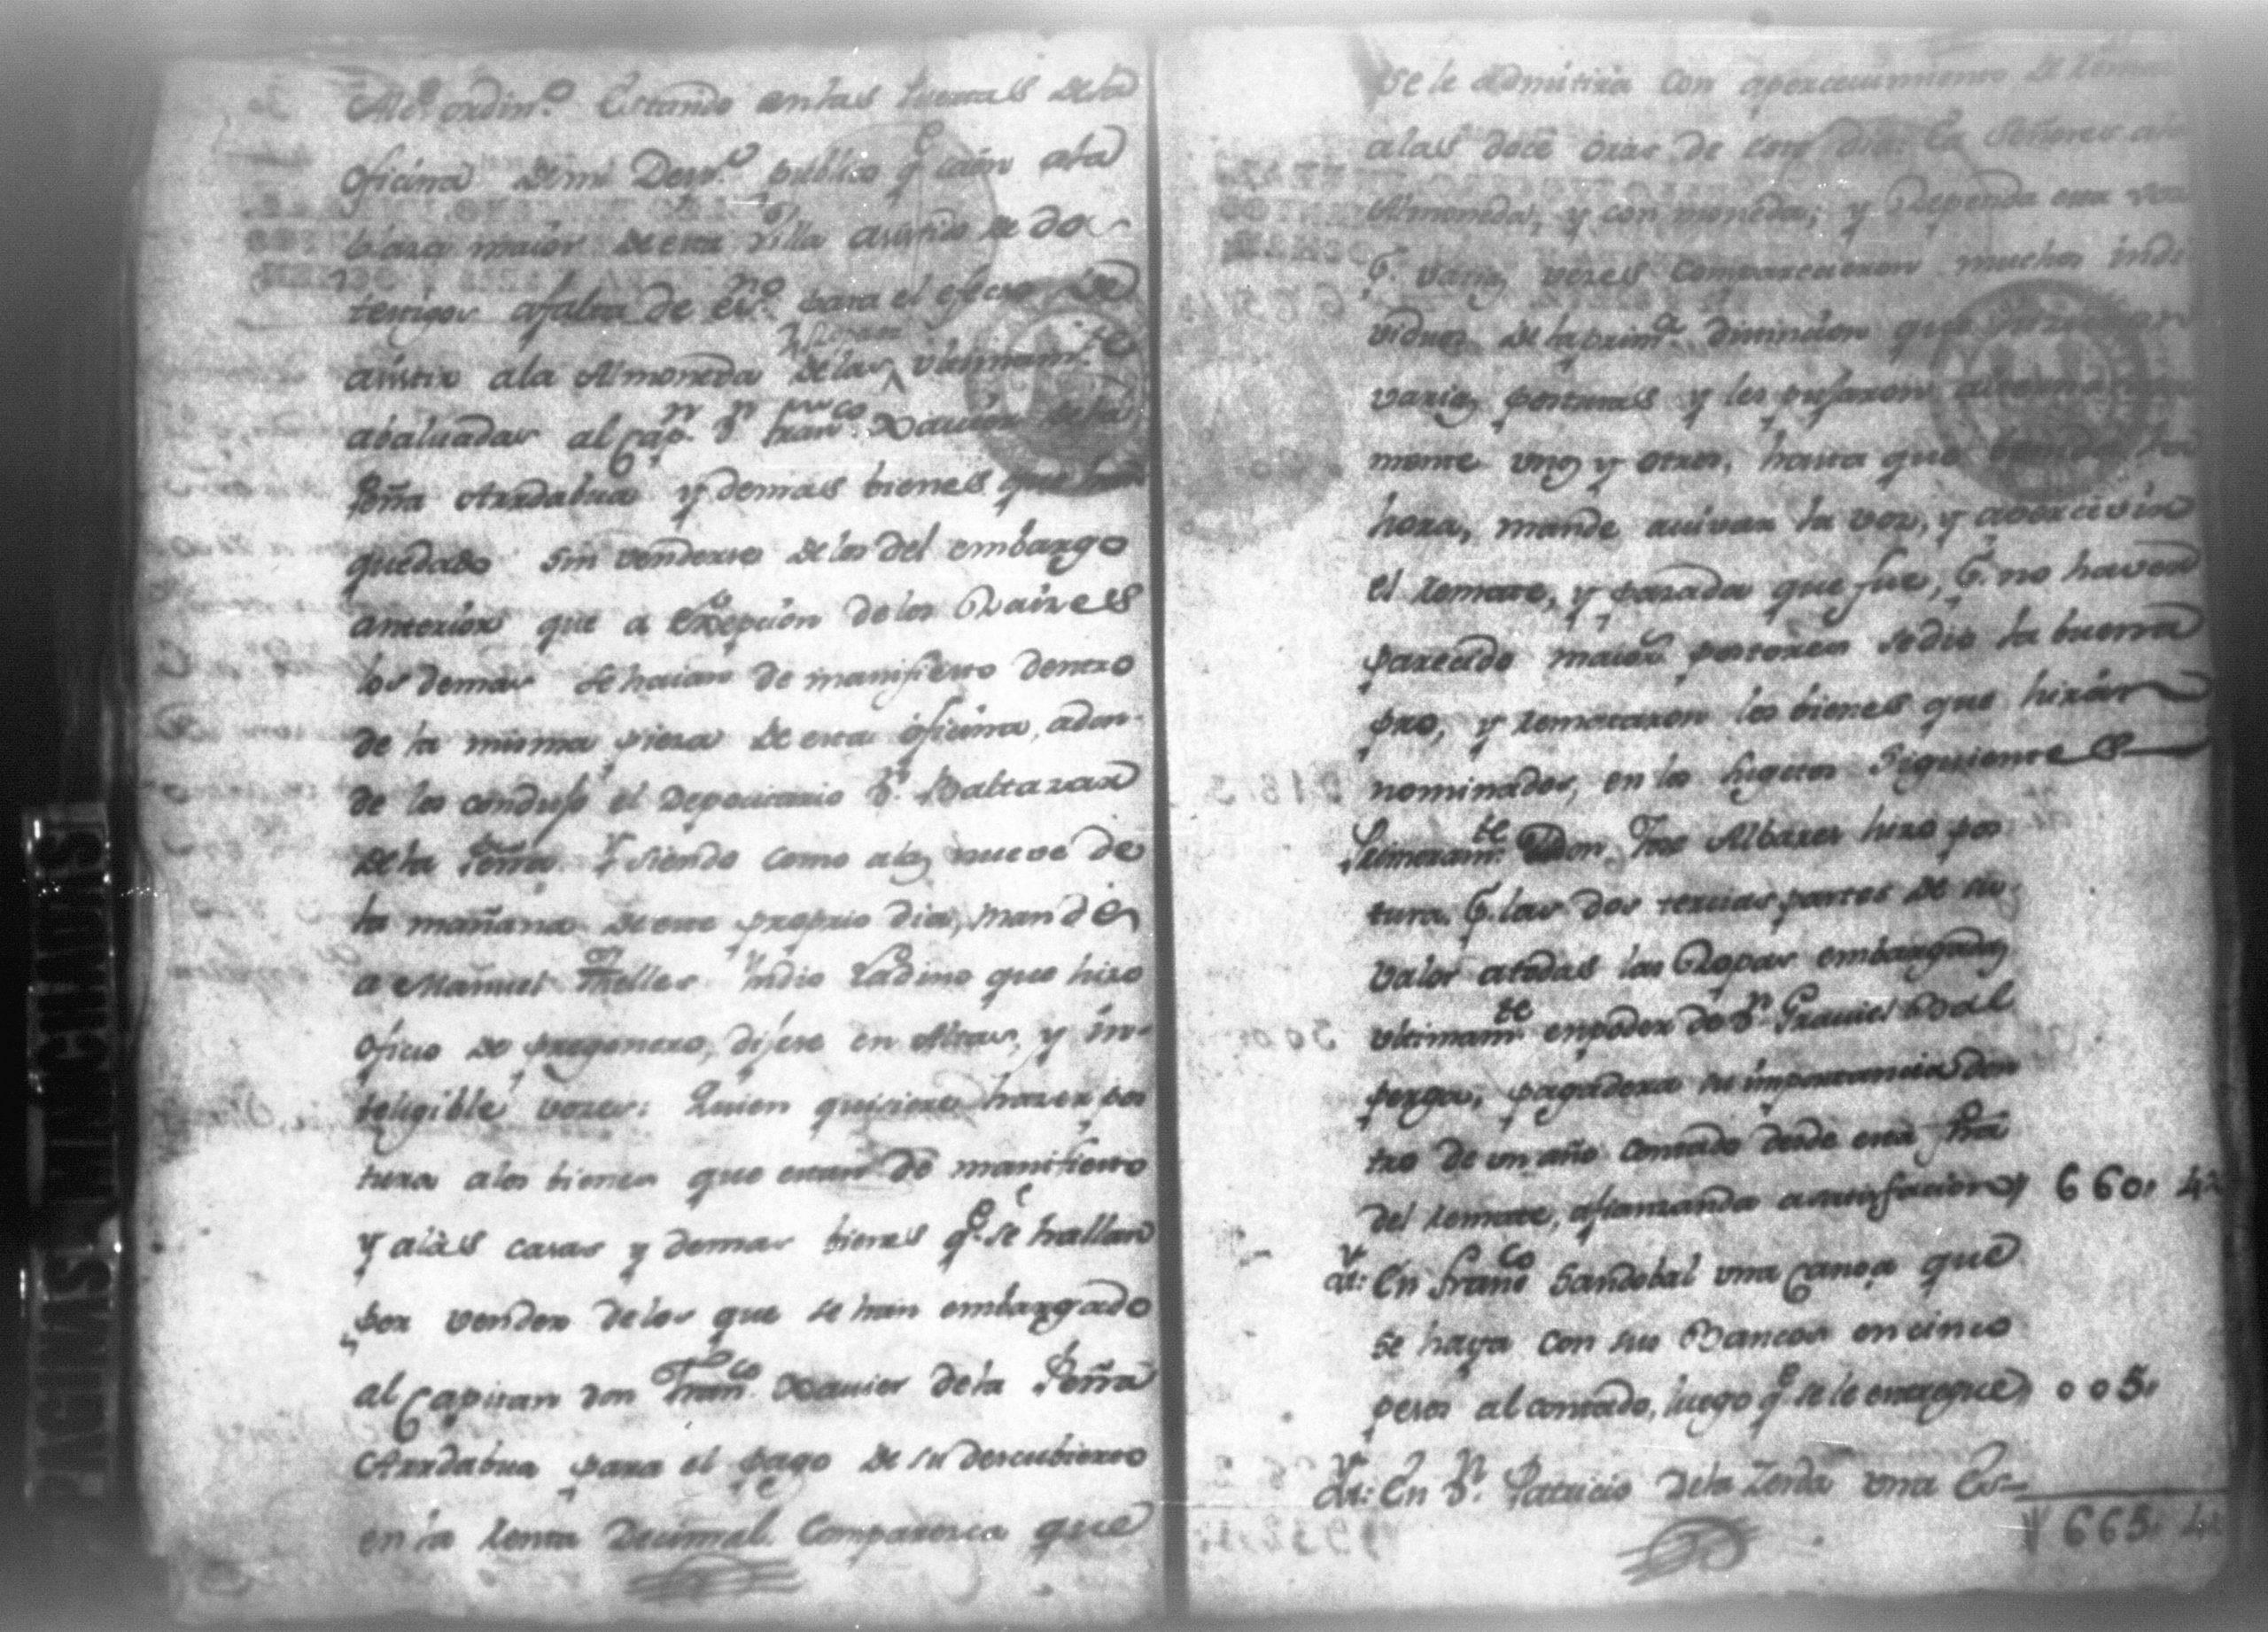 Alc.e ordin.o Estando en las puertas de la
oficina de mi Desp.o publico q.e caen a la
plaza maior de esta Villa asistido de dos
testigos a falta de es.no para el efecto de
asistir a la Almoneda de las ultimam.te
abaluadas al Cap.n D.n Fran.co Xauier de la
Peña Arrdabua y demas bienes que han
quedado sin venderse de los del embargo
anterior que a exepcion de los Raizes
los demas se haian de manifiesto dentro
de la misma pieza de esta oficina, adon-
de los condujo el Depocitario D.n Baltazar
de la Peña. Y siendo como a las nueve de
la mañana de este proprio dia, mandé
a Manuel Thelles Yndio Ladino que hizo
oficio de pregonero, dijese en Altas, y in-
teligible vozes: Quien quisiere hazer pos
tura a los bienes que estan de manifiesto
y a las casas y demas bienes q.e se hallan
por vender de los que se han embargado
al Capitan don Fran.co Xauier de la Peña
Arrdabua para el pago de su descubierto
en la Renta Decimal Comparesca que
se le admitira con apercevimiento de Rema
a las doce oras de este dia. Ea Señores a la
Almoneda, y con moneda; y Repetida esta voz
P. varias vezes comparecieron muchos indi
viduos de la prim.a distincion que
varias posturas y les pujaron
mente unos y otros, hasta que
hora, mande auivar la voz, y apercivir
el Remate, y pasada que fue, P. no havend
parecido maior postores se dio la buena
pro, y Remataron los bienes que hirán
nominados, en los sugetos siguientes
Primeram.te Don Jose Albares hizo pos
tura P. las dos tercias partes de su
valor a todas las Ropas embargadas
ultimam.te en poder de D.n Graviel Bal
perga, pagadera su importancia den
tro de un año contado desde esta fha
del Remate, afianzando a satisfacion 660, 4
At: En Fran.co Sandobal una Canoa que
se haya con sus Bancos en cinco
pesos al contado, luego q.e se le entregue 005,
At: En D.n Patricio de la Zerda una Es-
665, 4
PAGINAS MANCHADAS